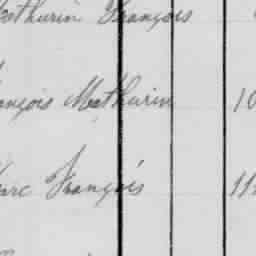 Mathurin François
François Mathurin 10
Marc François 11